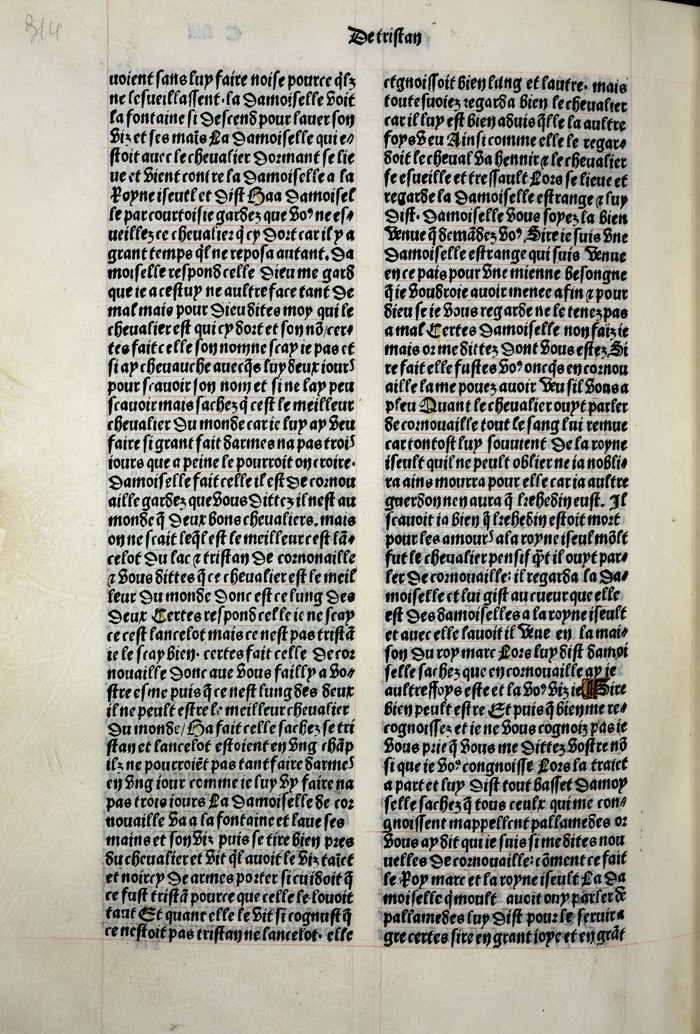 314
De tristan
uoient sans luy faire noise pource q̃lz
ne lesueillassent. la Damoiselle voit
la fontaine si descend pour lauer son
viz et ses mais̃ La damoiselle qui e⸗
stoit auec le cheualier dormant se lie
ue et vient contre la damoiselle a la
Royne iseult et dist Haa damoisel
le par courtoisie gardez que voꝰ ne es⸗
ueillez ce cheualier q̃ cy dort car il y a
grant temps q̃l ne reposa autant. Da
moiselle respond celle Dieu me gard
que ie a cestuy ne aultre face tant de
mal mais pour dieu dites moy qui le
cheualier est qui cy dort et son nõ/cer⸗
tes fait celle son nomne scay ie pas et
si ay cheuauche auecq̃s luy deux iours
pour scauoir son nom et si ne lay peu
scauoir mais sachez q̃ cest le meilleur
cheualier du monde car ie luy ay veu
faire si grant fait darmes na pas trois
iours que a peine le pourroit on croire.
Damoiselle fait celle il est de cornou
aille gardez que vous dittez il nest au
monde q̃ deux bons cheualiers. mais
on ne scait leq̃l est le meilleur cest lã⸗
celot du lac ⁊ tristan de cornonaille
⁊ vous dittes q̃ ce cheualier est le meil
leur du monde donc est ce lung des
deux Certes respond celle ie ne scay
ce cest lancelot mais ce nest pas tristã
ie le scay bien. certes fait celle de cor
nouaille donc aue vous failly a vo⸗
stre esme puis q̃ ce nest lung des deux
il ne peult estre le meilleur cheualier
du monde/ Ha fait celle sachez se tri
stan et lancelot estoient en vng chãp
ilz ne pourroiẽt pas tant faire darmes
en vng iour comme ie luy vy faire na
pas trois iours La damoiselle de cor
nouaille va a la fontaine et laue ses
mains et son viz puis se tire bien pres
du cheualier et vit q̃l auoit le viz taict
et noircy de armes porter si cuidoit q̃
ce fust tristã pource que celle le louoit
taut Et quant elle le vit si cognust q̃
ce nestoit pas tristan ne lancelot. elle
cognoissoit bien lung et lautre. mais
toutesuoiez regarda bien le cheualier
car il luy est bien aduis q̃lle la aultre
foys veu Ainsi comme elle le regar⸗
doit le cheual va hennir ⁊ le cheualier
se esueille et tressault Lors se lieue et
regarde la damoiselle estrange ⁊ luy
dist. Damoiselle vous soyez la bien
venue q̃ demãdez voꝰ. Sire ie suis vne
damoiselle estrange qui suis venue
en ce pais pour vne mienne besongne
q̃ ie voudroie auoir menee a fin ⁊ pour
dieu se ie vous regarde ne le tenez pas
a mal Certes damoiselle non faiz ie
mais or me dittez dont vous estez. Si
re fait elle fustes voꝰ oncq̃s en cornou
aille la me pouez auoir veu sil vous a
pleu Quant le cheualier ouyt parler
de cornouaille tout le sang lui remue
car tontost luy souuient de la royne
iseult quil ne peult oblier ne ia nobli⸗
ra ains mourra pour elle car ia aultre
guerdon nen aura q̃ lrehedin eust. Il
scauoit ia bien q̃ lrehedin estoit mort
pour les amours a la royne iseul mõlt
fut le cheualier pensif q̃t il ouyt par⸗
ler de cornouaille: il regarda la da⸗
moiselle et lui gist au cueur que elle
est des damoiselles a la royne iseult
et auec elle lauoit il veue en la mai⸗
son du roy marc Lors luy dist damoi
selle sachez que en cornouaille ay ie
aultreffoys este et la voꝰ viz ie Sire
bien peult estre Et puis q̃ bien me re⸗
cognoissez et ie ne vous cognoiz pas ie
vous prie q̃ vous me dittez vostre nõ
si que ie voꝰ congnoisse Lors la traict
a part et luy dist tout basset Damoy
selle sachez q̃ tous ceulx qui me con⸗
gnoissent mappellent pallamedes or
vous ay dit qui ie suis si me dites nou
uelles de cornouaille: cõment ce fait
le Roy marc et la royne iseult La da
moiselle q̃ moult auoit ouy parler de
pallamedes luy dist pour le seruir a
gre certes sire en grant ioye et en grãt